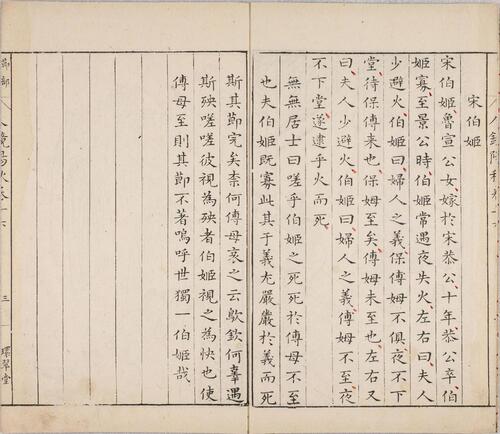 宋伯姬
宋伯姬魯宣公女嫁於宋恭公十年恭公卒伯
姬寡至景公時伯姬常遇夜失火左右曰夫人
少避火伯姬曰婦人之義保傅姆不俱夜不下
堂待保傅來也保姆至矣傅姆未至也左右又
曰夫人少避火伯姬曰婦人之義傅姆不至夜
不下堂遂逮乎火而死
無無居士曰嗟乎伯姬之死死於傅母不至
也夫伯姬既寡此其于義尤嚴嚴於義而死
斯其節完矣柰何傅母哀之云歔欷何辜遇
斯殃嗟嗟彼視為殃者伯姬視之為快也使
傅母至則其節不著嗚呼世獨一伯姬哉
節部 人鏡陽秋卷十六 三 環翠堂